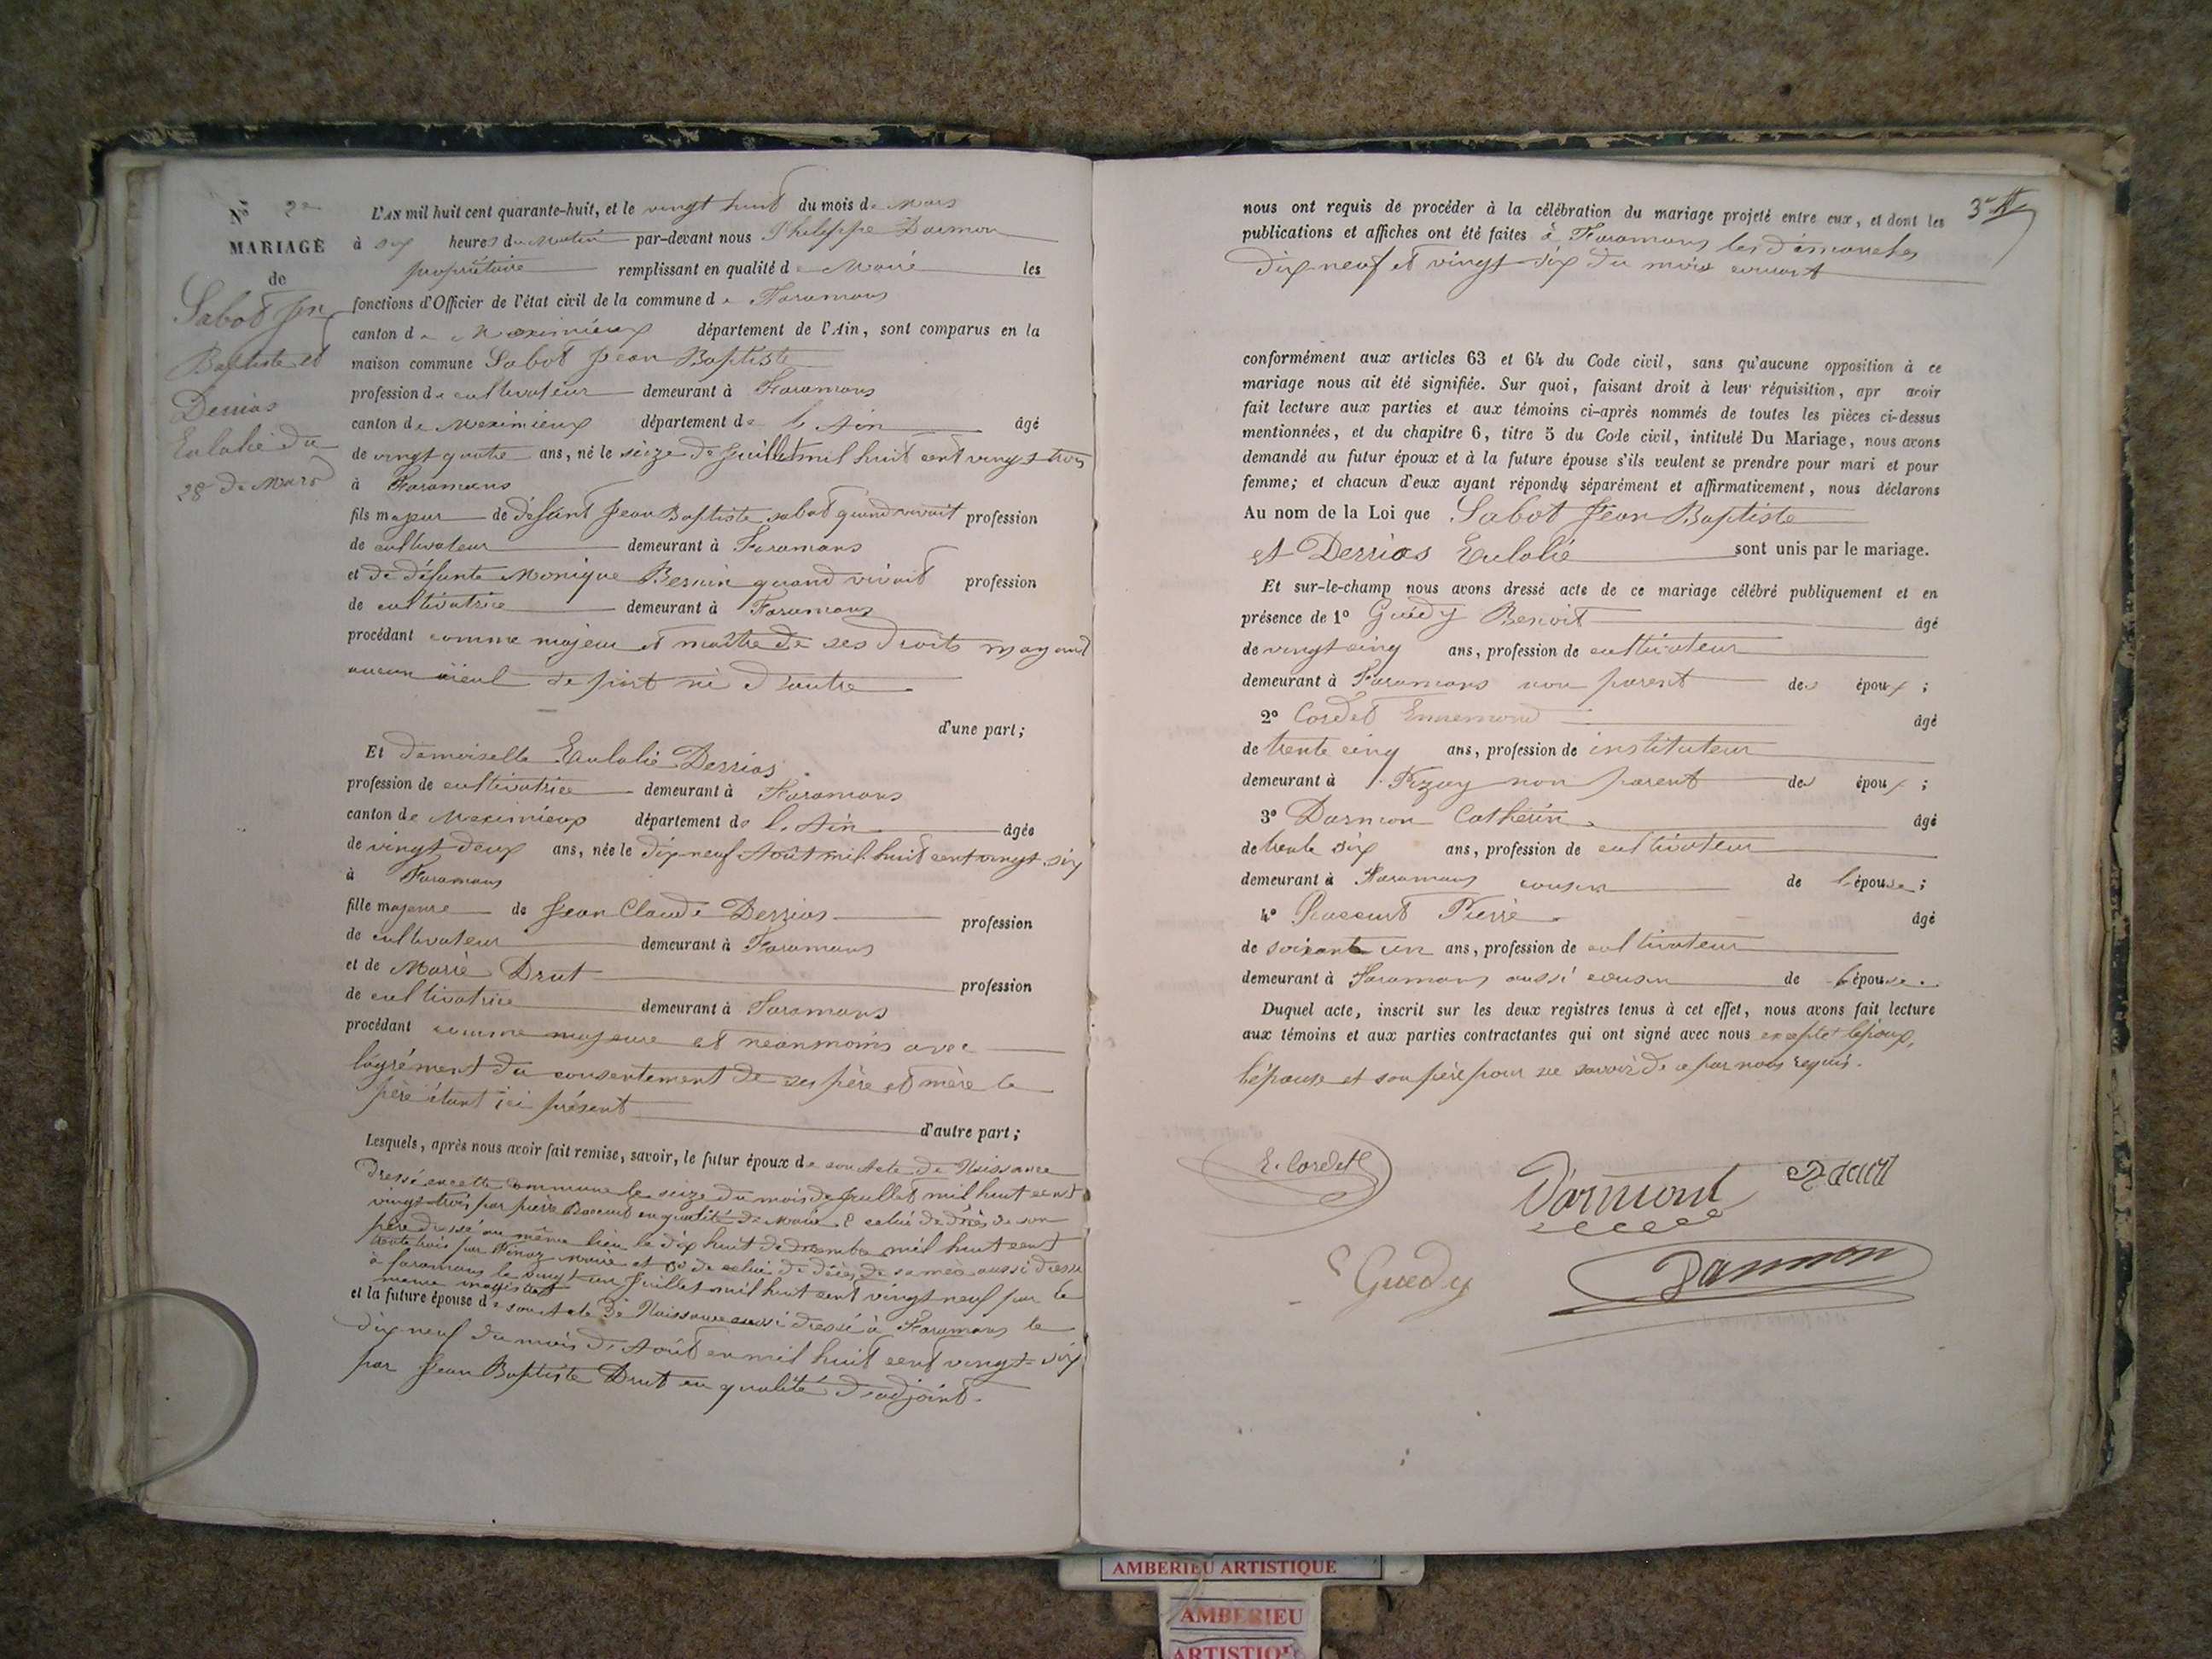 N° 2e
MARIAGE
de
Sabot Jn
Baptiste et
Derrias
Eulalie du
28 de Mars
L'AN mil huit cent quarante-huit, et le vingt huit du mois de Mars
à six heures du Matin par-devant nous Philippe Darmon
propriétaire remplissant en qualité de Maire les
fonctions d'Officier de l'état civil de la commune de Faramans
canton de Meximieux département de l'Ain, sont comparus en la
maison commune Sabot Jean Baptiste
profession de cultivateur demeurant à Faramans
canton de Meximieux département de L'Ain âgé
de vingt quatre ans, né le seize de Juillet mil huit cent vingt trois
à Faramans
fils majeur de défunt Jean Baptiste sabot quand vivait profession
de cultivateur demeurant à Faramans
et de défunte Monique Bernin quand vivait profession
de cultivatrice demeurant à Faramans
procédant comme majeur et maître de ses droits n'ayant
aucun aïeul de part ni d'autre
d'une part;
Et demoiselle Eulalie Derrias
profession de cultivatrice demeurant à Faramans
canton de Meximieux département de l'Ain âgée
de vingt deux ans, née le dix neuf Août mil huit cent vingt six
à Faramans
fille majeure de Jean Claude Derrias profession
de cultivateur demeurant à Faramans
et de Marie Drut profession
de cultivatrice demeurant à Faramans
procédant comme majeure et néanmoins avec
l'agrément du consentement de ses père et mère le
père étant ici présent
d'autre part;
Lesquels, après nous avoir fait remise, savoir, le futur époux de son Acte de Naissance
dressé en cette commune le seize du mois de Juillet mil huit cent
vingt trois par pierre Raccurt en qualité de Maire 2° celui de décès de son
père dressé au même lieu le dix huit de mil huit cent
trente trois par maire et 3° de celui de décès de sa mère aussi dressé
à faramans le vingt un Juillet mil huit cent vingt neuf par le
meme magistrat
et la future épouse de son Acte de Naissance aussi dressé à Faramans le
dix neuf du mois d'Août en mil huit cent vingt-six
par Jean Baptiste Drut en qualité d'adjoint.
3e
nous ont requis de procéder à la célébration du mariage projeté entre eux, et dont les
publications et affiches ont été faites à Faramans les dimanches
dix neuf et vingt-six du mois courant
conformément aux articles 63 et 64 du Code civil, sans qu'aucune opposition à ce
mariage nous ait été signifiée. Sur quoi, faisant droit à leur réquisition, apr avoir
fait lecture aux parties et aux témoins ci-après nommés de toutes les pièces ci-dessus
mentionnées, et du chapitre 6, titre 5 du Code civil, intitulé Du Mariage, nous avons
demandé au futur époux et à la future épouse s'ils veulent se prendre pour mari et pour
femme; et chacun d'eux ayant répondu séparément et affirmativement, nous déclarons
Au nom de la Loi que Sabot Jean Baptiste
et Derrias Eulalie sont unis par le mariage.
Et sur-le-champ nous avons dressé acte de ce mariage célébré publiquement et en
présence de 1° Guédy Benoit âgé
de vingt cinq ans, profession de cultivateur
demeurant à Faramans non parent des époux;
2° Cordet Ennemond âgé
de trente cinq ans, profession de instituteur
demeurant à Pizay non parent des époux;
3° Darmon Catherin âgé
de trente six ans, profession de cultivateur
demeurant à Faramans cousin de l'épouse;
4° Raccurt Pierre âgé
de soixante un ans, profession de cultivateur
demeurant à Faramans aussi cousin de l'épouse.
Duquel acte, inscrit sur les deux registres tenus à cet effet, nous avons fait lecture
aux témoins et aux parties contractantes qui ont signé avec nous excepté l'époux,
l'épouse et son père pour ne savoir de ce par nous requis.
E. Cordet
Darmont
Guedy
Darmon
AMBERIEU ARTISTIQUE
AMBERIEU
ARTISTIQ